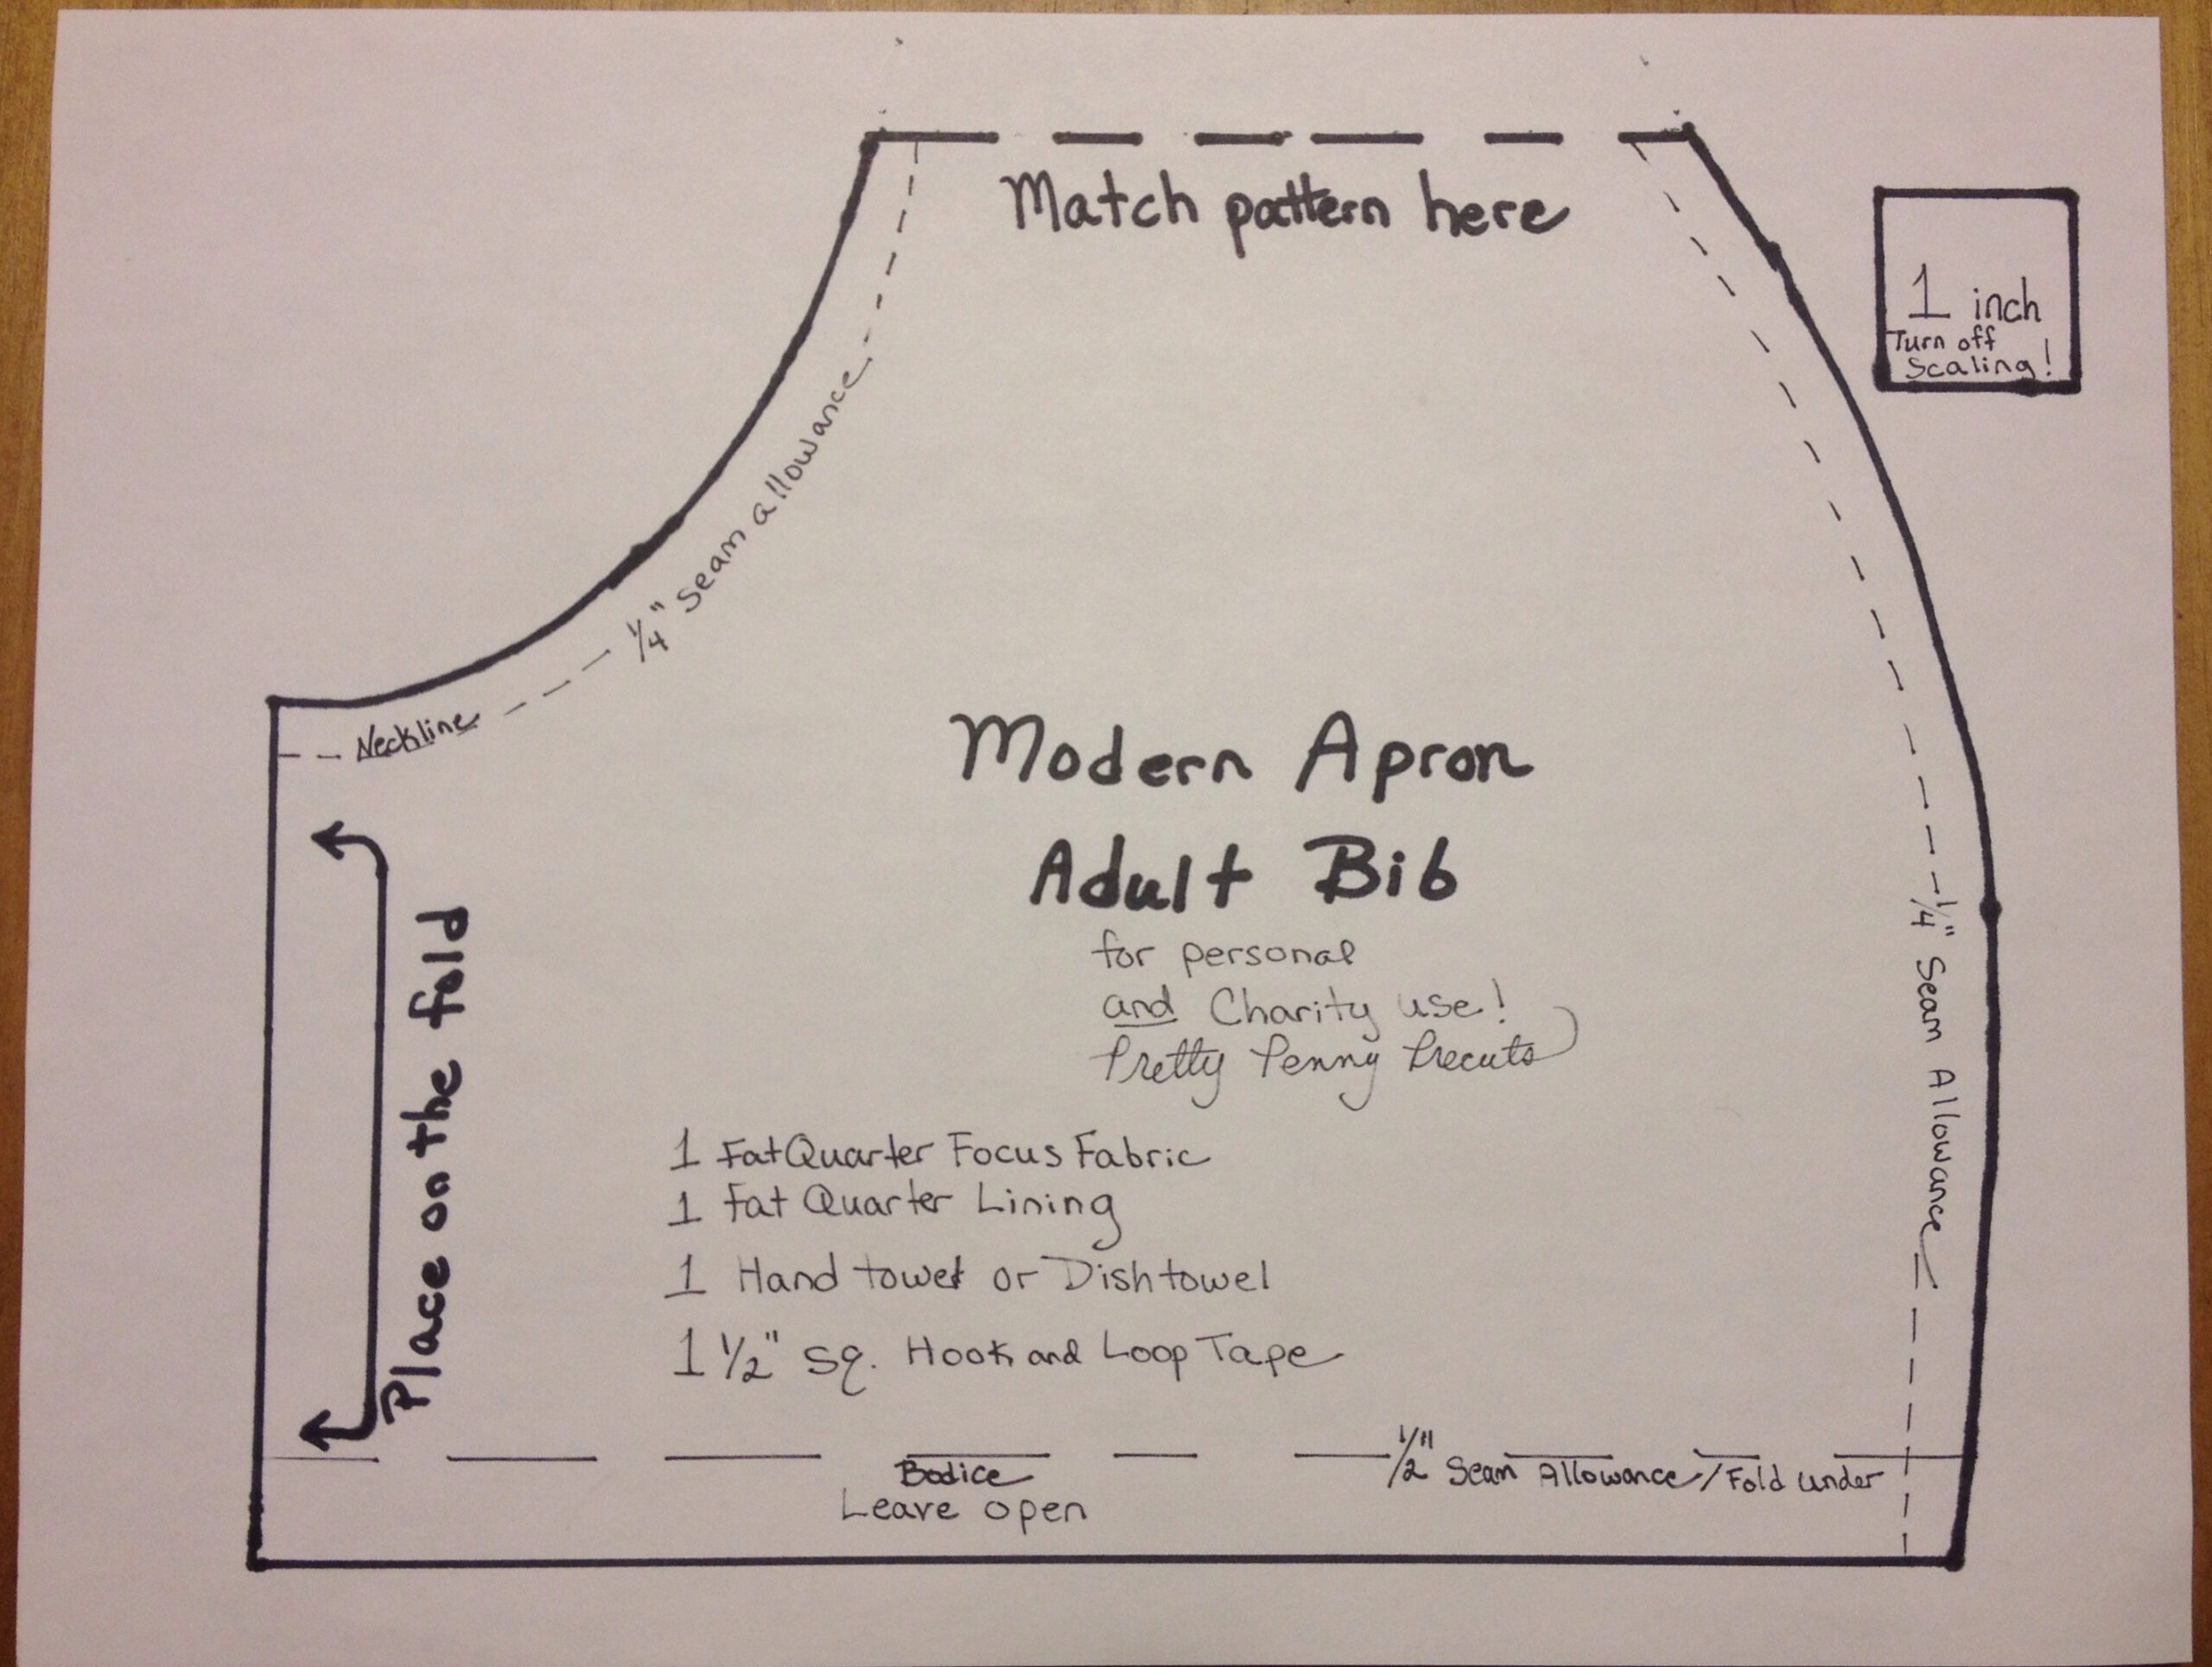 Match pattern here
1 inch
Turn off
Scaling!
1/4" seam allowance
Neckline
Place on the fold
Modern Apron
Adult Bib
for personal
and Charity use!
Pretty Penny Precuts
1/4" Seam Allowance
1 Fat Quarter Focus Fabric
1 Fat Quarter Lining
1 Hand towel or Dish towel
1 1/2" sq. Hook and Loop Tape
Bodice
Leave open
1/2" Seam Allowance/Fold under